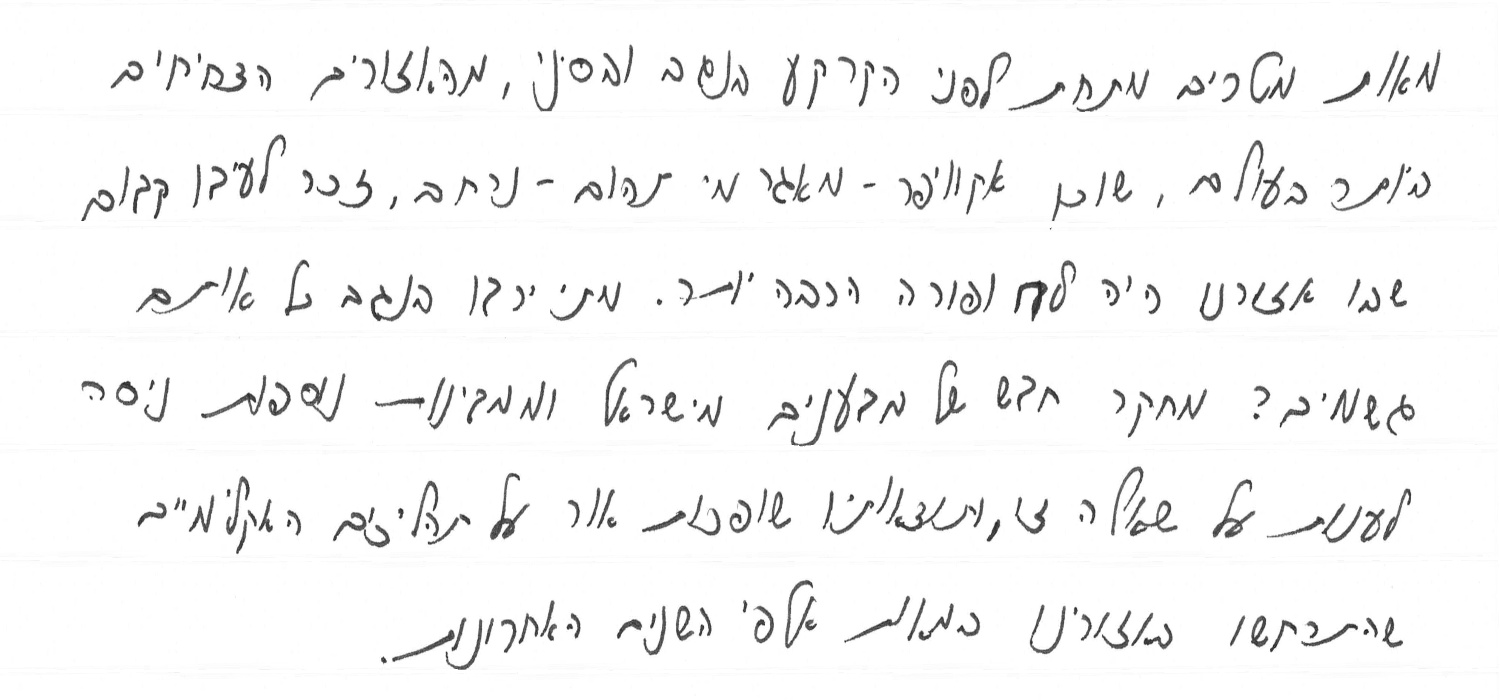 מאות מטרים מתחת לפני הקרקע בנגב ובסיני, מהאזורים הצחיחים
ביותר בעולם, שוכן אקוויפר - מאגר מי תהום - נרחב, זכר לעידן קדום
שבו אזורנו היה לח ופורה הרבה יותר. מתי ירדו בנגב כל אותם
גשמים? מחקר חדש של מדענים מישראל וממדינות נוספות ניסה
לענות על שאלה זו, ותוצאותיו שופכות אור על תהליכים האקלימיים
שהתרחשו באזורינו במאות אלפי השנים האחרונות.